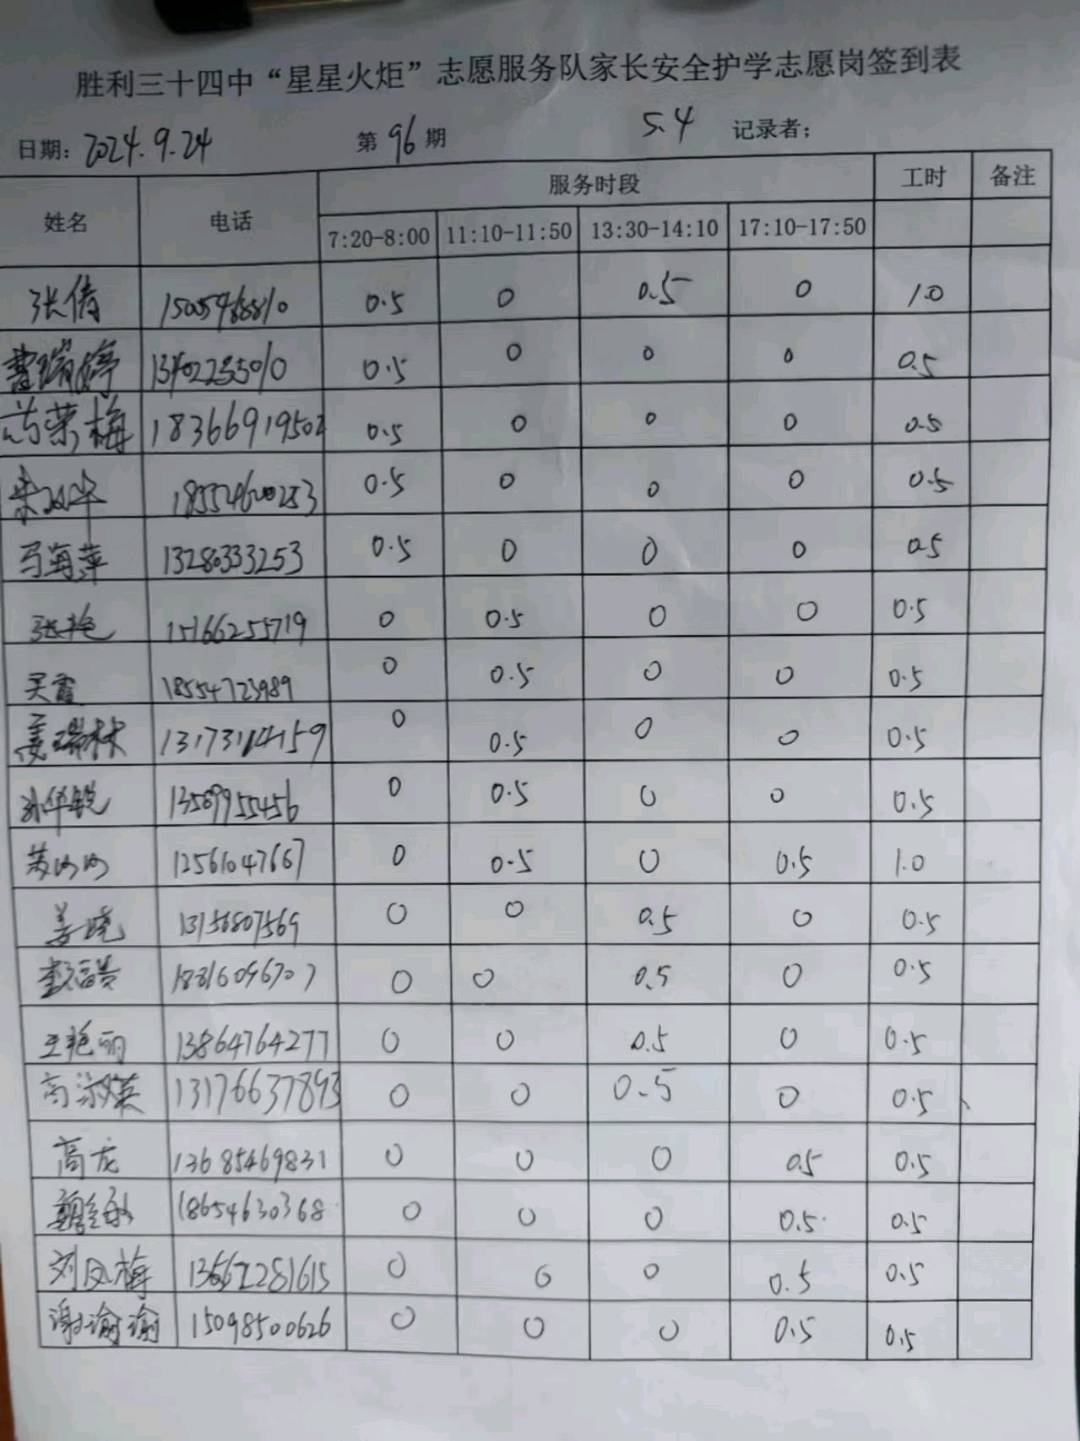 胜利三十四中“星星火炬”志愿服务队家长安全护学志愿岗签到表
日期: 2024.9.24 第 96 期 5.4 记录者;
姓名 电话 服务时段 工时 备注
7:20-8:00 11:10-11:50 13:30-14:10 17:10-17:50
张倩 0.5 0 0.5 0 1.0
0.5 0 0 0 0.5
荣梅 18366919502 0.5 0 0 0 0.5
18554600253 0.5 0 0 0 0.5
马海萍 13280333253 0.5 0 0 0 0.5
张艳 15166255719 0 0.5 0 0 0.5
吴霞 18554723989 0 0.5 0 0 0.5
姜瑞林 13173114159 0 0.5 0 0 0.5
孙华锐 13589955456 0 0.5 0 0 0.5
12561047667 0 0.5 0 0.5 1.0
姜晓 13156807569 0 0 0.5 0 0.5
0 0 0.5 0 0.5
王艳丽 13864764277 0 0 0.5 0 0.5
高淑英 13176637893 0 0 0.5 0 0.5
高龙 13685469831 0 0 0 0.5 0.5
18654630368 0 0 0 0.5 0.5
刘凤梅 13662281615 0 0 0 0.5 0.5
谢瑜瑜 15098500626 0 0 0 0.5 0.5